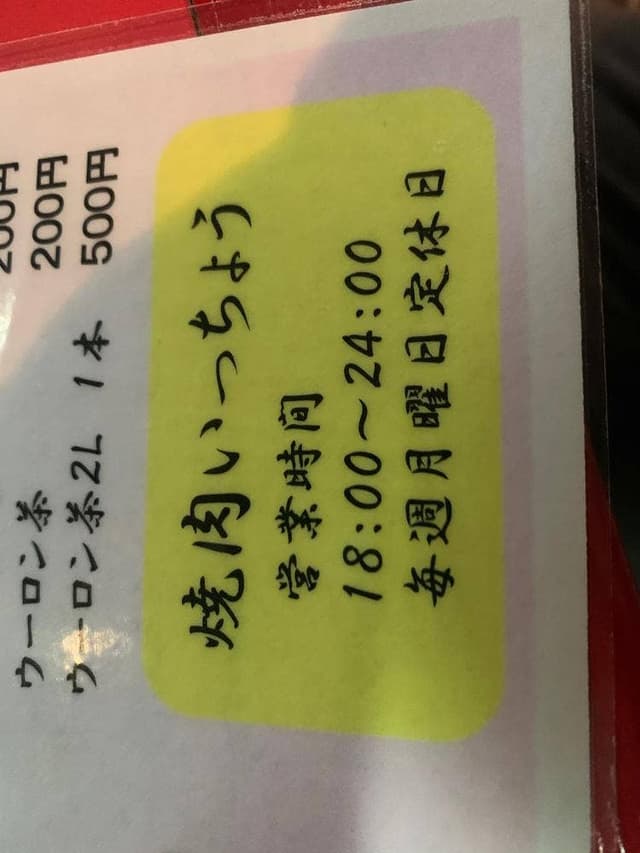 200円
ウーロン茶 200円
ウーロン茶2L 1本 500円
焼肉いっちょう
営業時間
18:00～24:00
毎週月曜日定休日